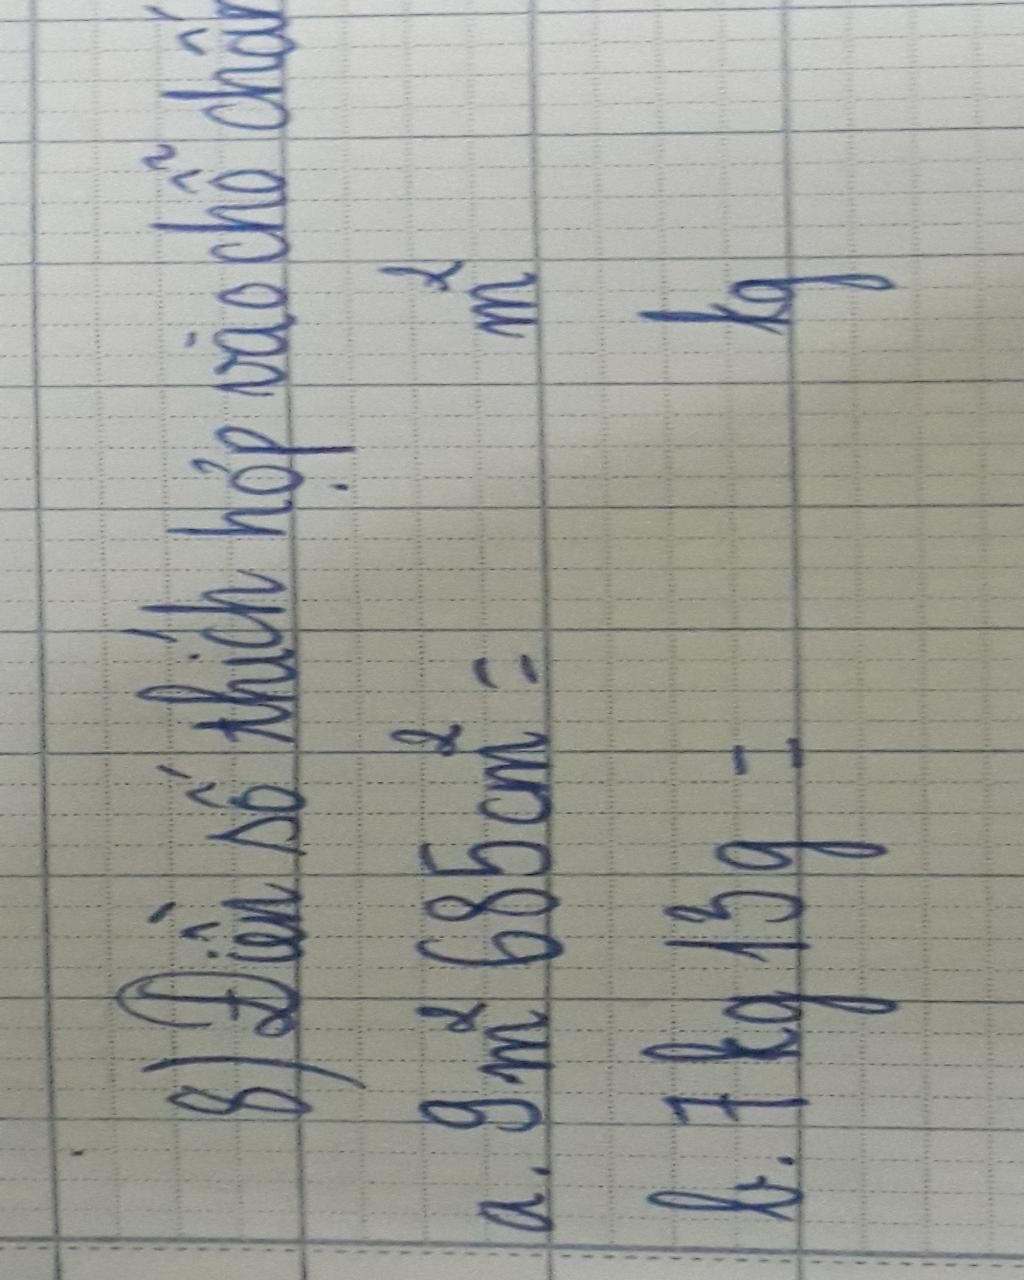 8) Điền số thích hợp vào chỗ chấm
a. 9m² 685cm² = m²
b. 7kg 13g = kg